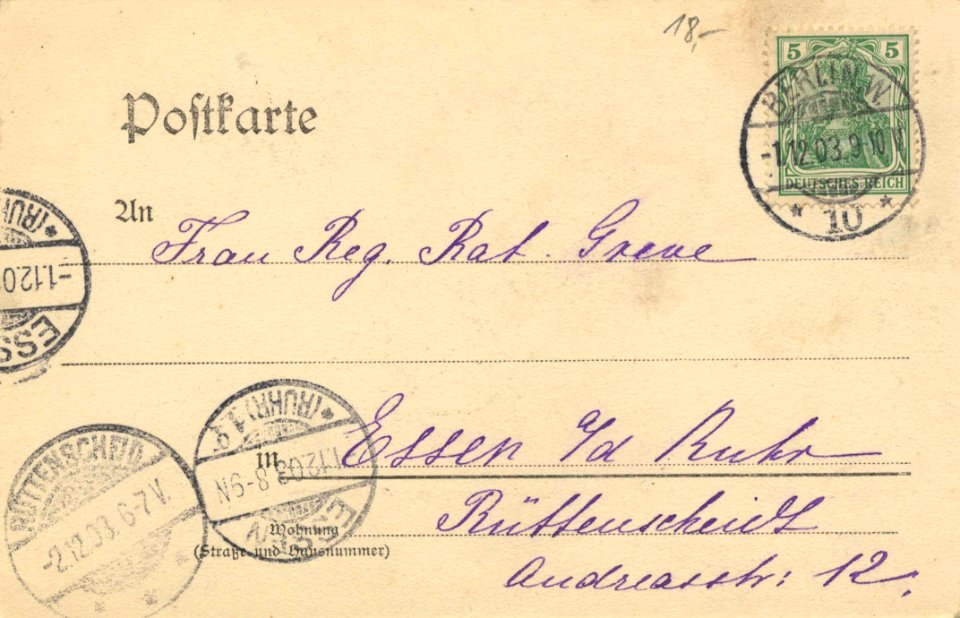 18,-
5 5
BERLIN W.
-1.12.03.9-10 V.
DEUTSCHES REICH
* 10 *
Postkarte
An
Frau Reg. Rat. Greve
*(RUHR)
-1.12.0
ESS
*(RUHR) 1
1.12.03 8-9N
ESSEN
in
Essen a/d Ruhr
RÜTTENSCHEID
-2.12.03. 6-7 V.
Rüttenscheidt
Wohnung
(Straße und Hausnummer)
Andreasstr: 12.